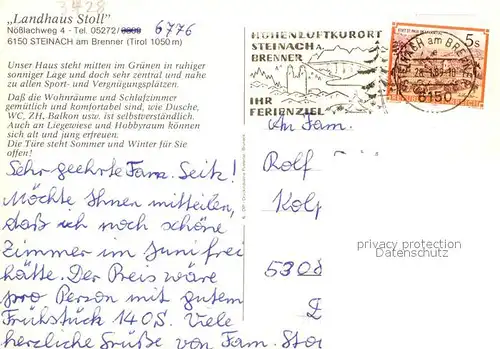 3428
„Landhaus Stoll”
Nößlachweg 4 - Tel. 05272/ 6776
6150 STEINACH am Brenner (Tirol 1050 m)
Unser Haus steht mitten im Grünen in ruhiger
sonniger Lage und doch sehr zentral und nahe
zu allen Sport- und Vergnügungsplätzen.
Daß die Wohnräume und Schlafzimmer
gemütlich und komfortabel sind, wie Dusche,
WC, ZH, Balkon usw. ist selbstverständlich.
Auch an Liegewiese und Hobbyraum können
sich alt und jung erfreuen.
Die Türe steht Sommer und Winter für Sie
offen!
Sehr geehrte Fam. Seitz!
Möchte Ihnen mitteilen,
daß ich noch schöne
Zimmer im Juni frei
hätte. Der Preis wäre
pro Person mit gutem
Frühstück 140 S. Viele
herzliche Grüße von Fam. Sto
HÖHENLUFTKURORT
STEINACH A.
BRENNER
IHR
FERIENZIEL
STEINACH am BRENNER
6150
5s
An Fam.
Rolf
Kolp
5308
privacy protection
Datenschutz